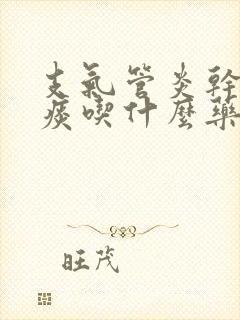 支氣管炎幹
痰喫什麼藥
旺茂